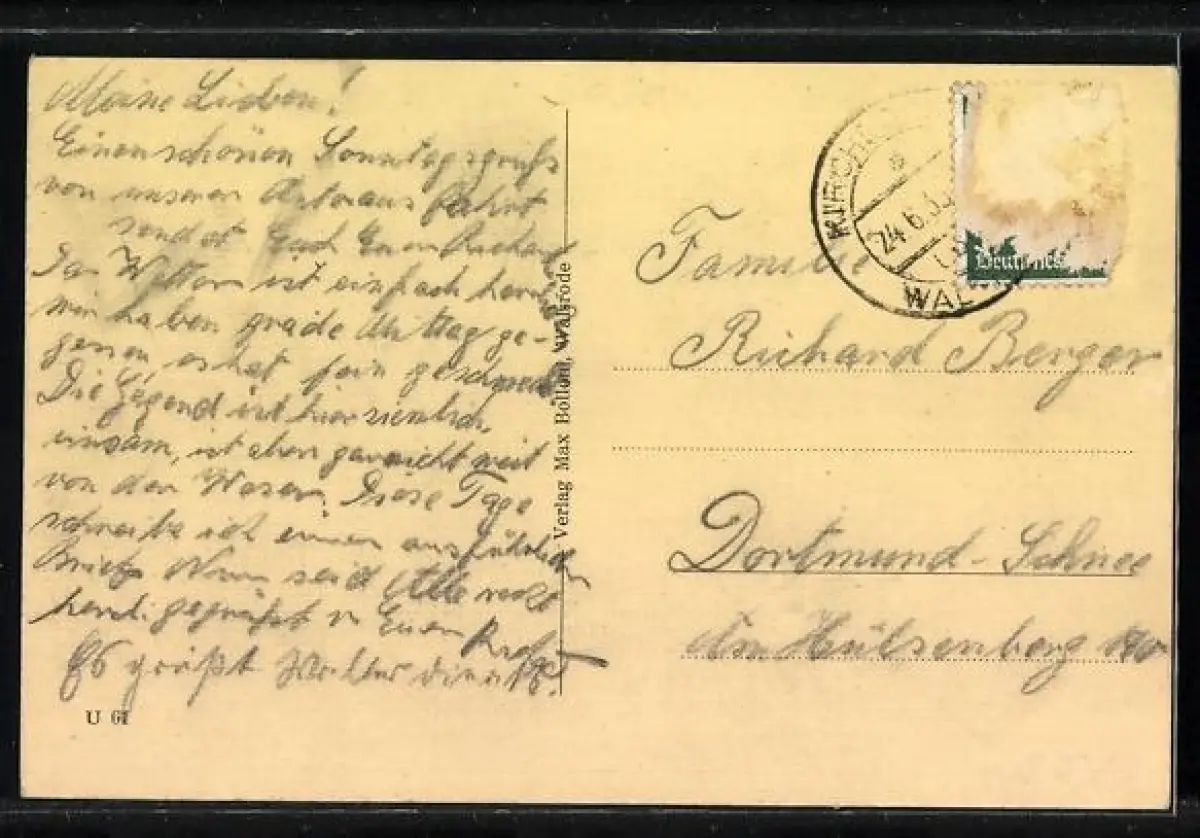 Meine Lieben!
Einen schönen Sonntagsgruß
von unserer Autoausfahrt
sendet Euch Euer Richard
Das Wetter ist einfach herrl
wir haben grade Mittag ge-
gessen, es hat fein geschmeckt
Die Gegend ist hier ziemlich
einsam, ist aber gar nicht weit
von der Weser. Diese Tage
schreibe ich einen ausführlichen
Brief. Nun seid Alle recht
herzl. gegrüßt v Euren
Es grüßt Walter
U 61
Verlag Max Walsrode
KIRCH
24.6.3
WAL
Familie
Richard Berger
Dortmund-Schnee
Am Hülsenberg